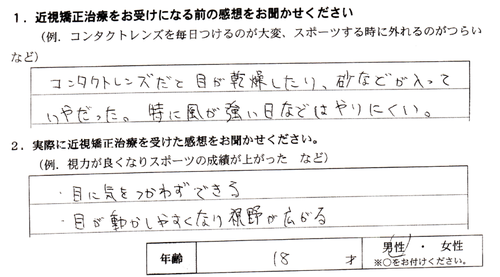 １．近視矯正治療をお受けになる前の感想をお聞かせください
（例．コンタクトレンズを毎日つけるのが大変、スポーツする時に外れるのがつらい
など）
コンタクトレンズだと目が乾燥したり、砂などが入って
いやだった。特に風が強い日などはやりにくい。
２．実際に近視矯正治療を受けた感想をお聞かせください。
（例．視力が良くなりスポーツの成績が上がった　など）
・目に気をつかわずできる
・目が動かしやすくなり視野が広がる
年齢　18　才　男性・女性
※○をお付けください。